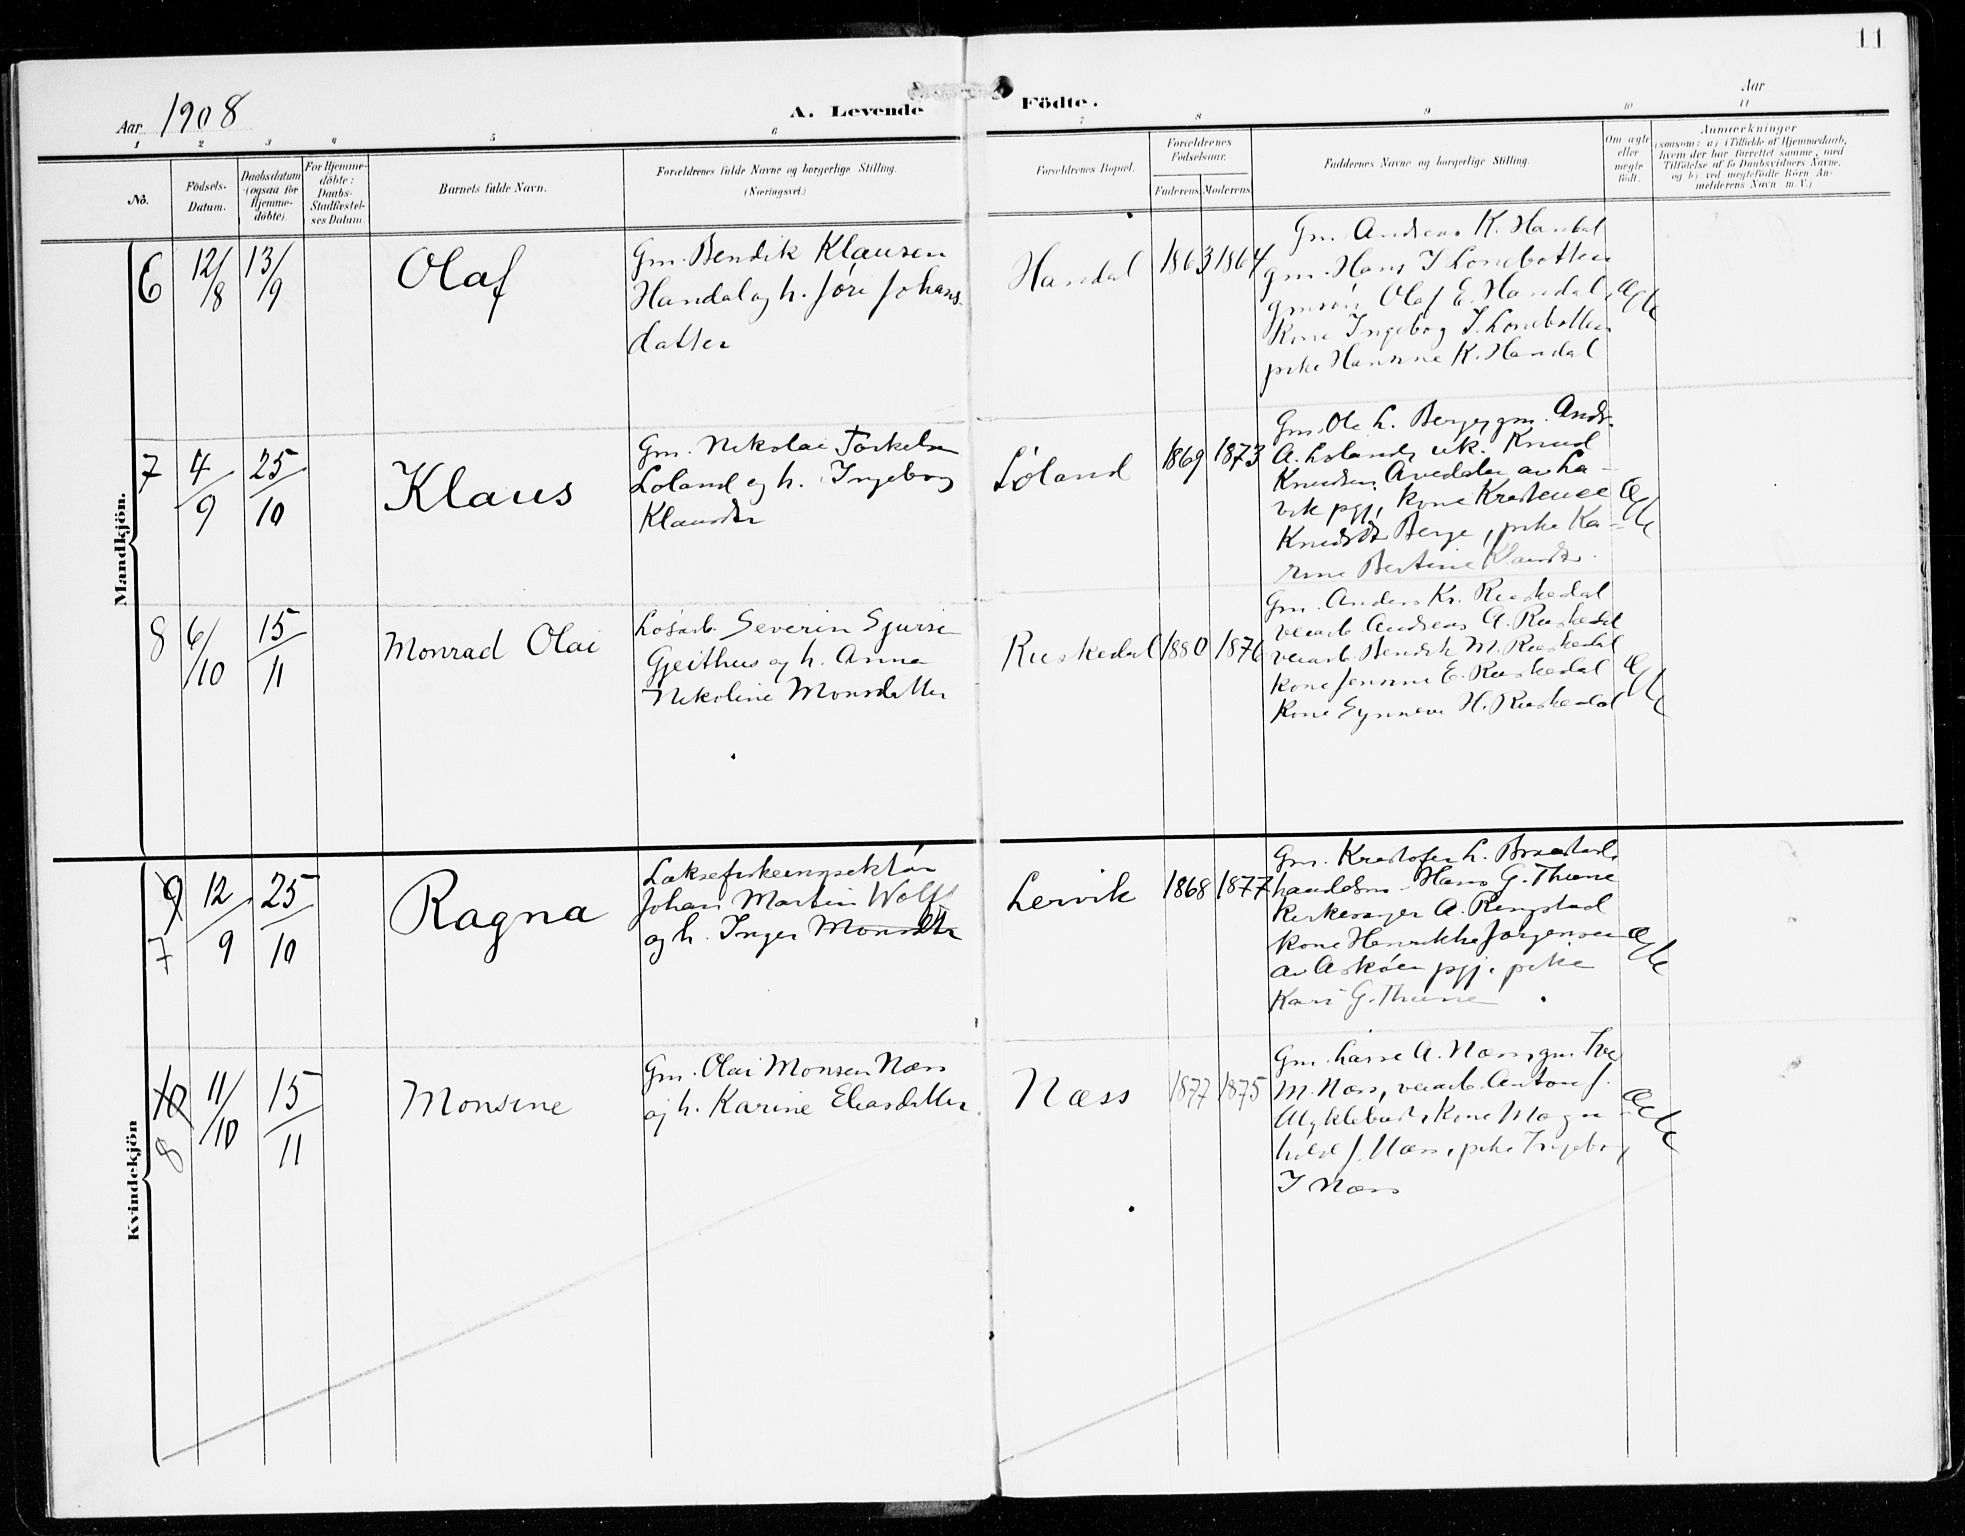 11
Aar 1908
A. Levende Födte.
Aar
1 2 3 4 5 6 7 8 9 10 11
No.
Födsels-
Datum.
Daabsdatum
(ogsaa for
Hjemme-
döbte).
For Hjemme-
döbte:
Daabs-
Stadfæstel-
ses Datum.
Barnets fulde Navn.
Forældrenes fulde Navne og borgerlige Stilling.
(Næringsvei.)
Forældrenes Bopæl.
Forældrenes
Födselsaar.
Faderens. Moderens.
Faddernes Navne og borgerlige Stilling.
Om ægte
eller
uægte
födt.
Anmærkninger
(saasom: a) i Tilfælde af Hjemmedaab,
hvem der har forrettet samme, med
Tilföielse af to Daabsvidners Navne,
og b) ved uægtefödte Börn An-
melderens Navn m. V.)
Mandkjön.
6
12/8
13/9
Olaf
Gm. Bendik Klausen
Handal og h. Jøre Johans-
datter
Handal
1863 1864
Gm. Andreas K. Handal
gm. Hans I Lonebotten
gmsøn Olaf E. Handal,
Kone Ingebog I. Lonebotten
pike Hansine K. Handal
Ægte
7
4/9
25/10
Klaus
Gm. Nikolai Torkelsen
Løland og h. Ingeborg
Klausdtr
Løland
1869 1873
Gm. Ole L. Berge, gm. Andr.
A. Løland, uk. Knud
Knudsen Avedalen av La-
vik pgj, kone Kristense
Knudsdtr Berge, pike Ka-
rine Bertine Klausdtr.
Ægte
8
6/10
15/11
Monrad Olai
Løsarb. Severin Sjursen
Gjeithus og h. Anna
Nikoline Monsdatter
Ruskedal
1880 1876
Gm. Anders Kr. Ruskedal
veiarb. Andreas A. Ruskedal
veiarb. Bendik M. Ruskedal
kone Jensine E. Ruskedal
Kone Synneve H. Ruskedal
Ægte
Kvindekjön
9
7
12/9
25/10
Ragna
Laksefiskeinspektør
Johan Martin Wolff
og h. Inger Monsdtr
Lervik
1868 1877
Gm. Kristofer L. Brastad,
handelsm. Hans G. Thune
Kirkesanger A. Ringstad
kone Henrikke Jørgensen
av Askøen pgj. pike
Kari G. Thune
Ægte
10
8
11/10
15/11
Monsine
Gm. Olai Monsen Næss
og h. Karine Eliasdatter
Næss
1877 1875
Gm. Lasse A. Næss, gm.
M. Næss, veiarb. Anton J.
Myklebust, Kone Magn
hild J. Næss, pike Ingeborg
I Næss
Ægte